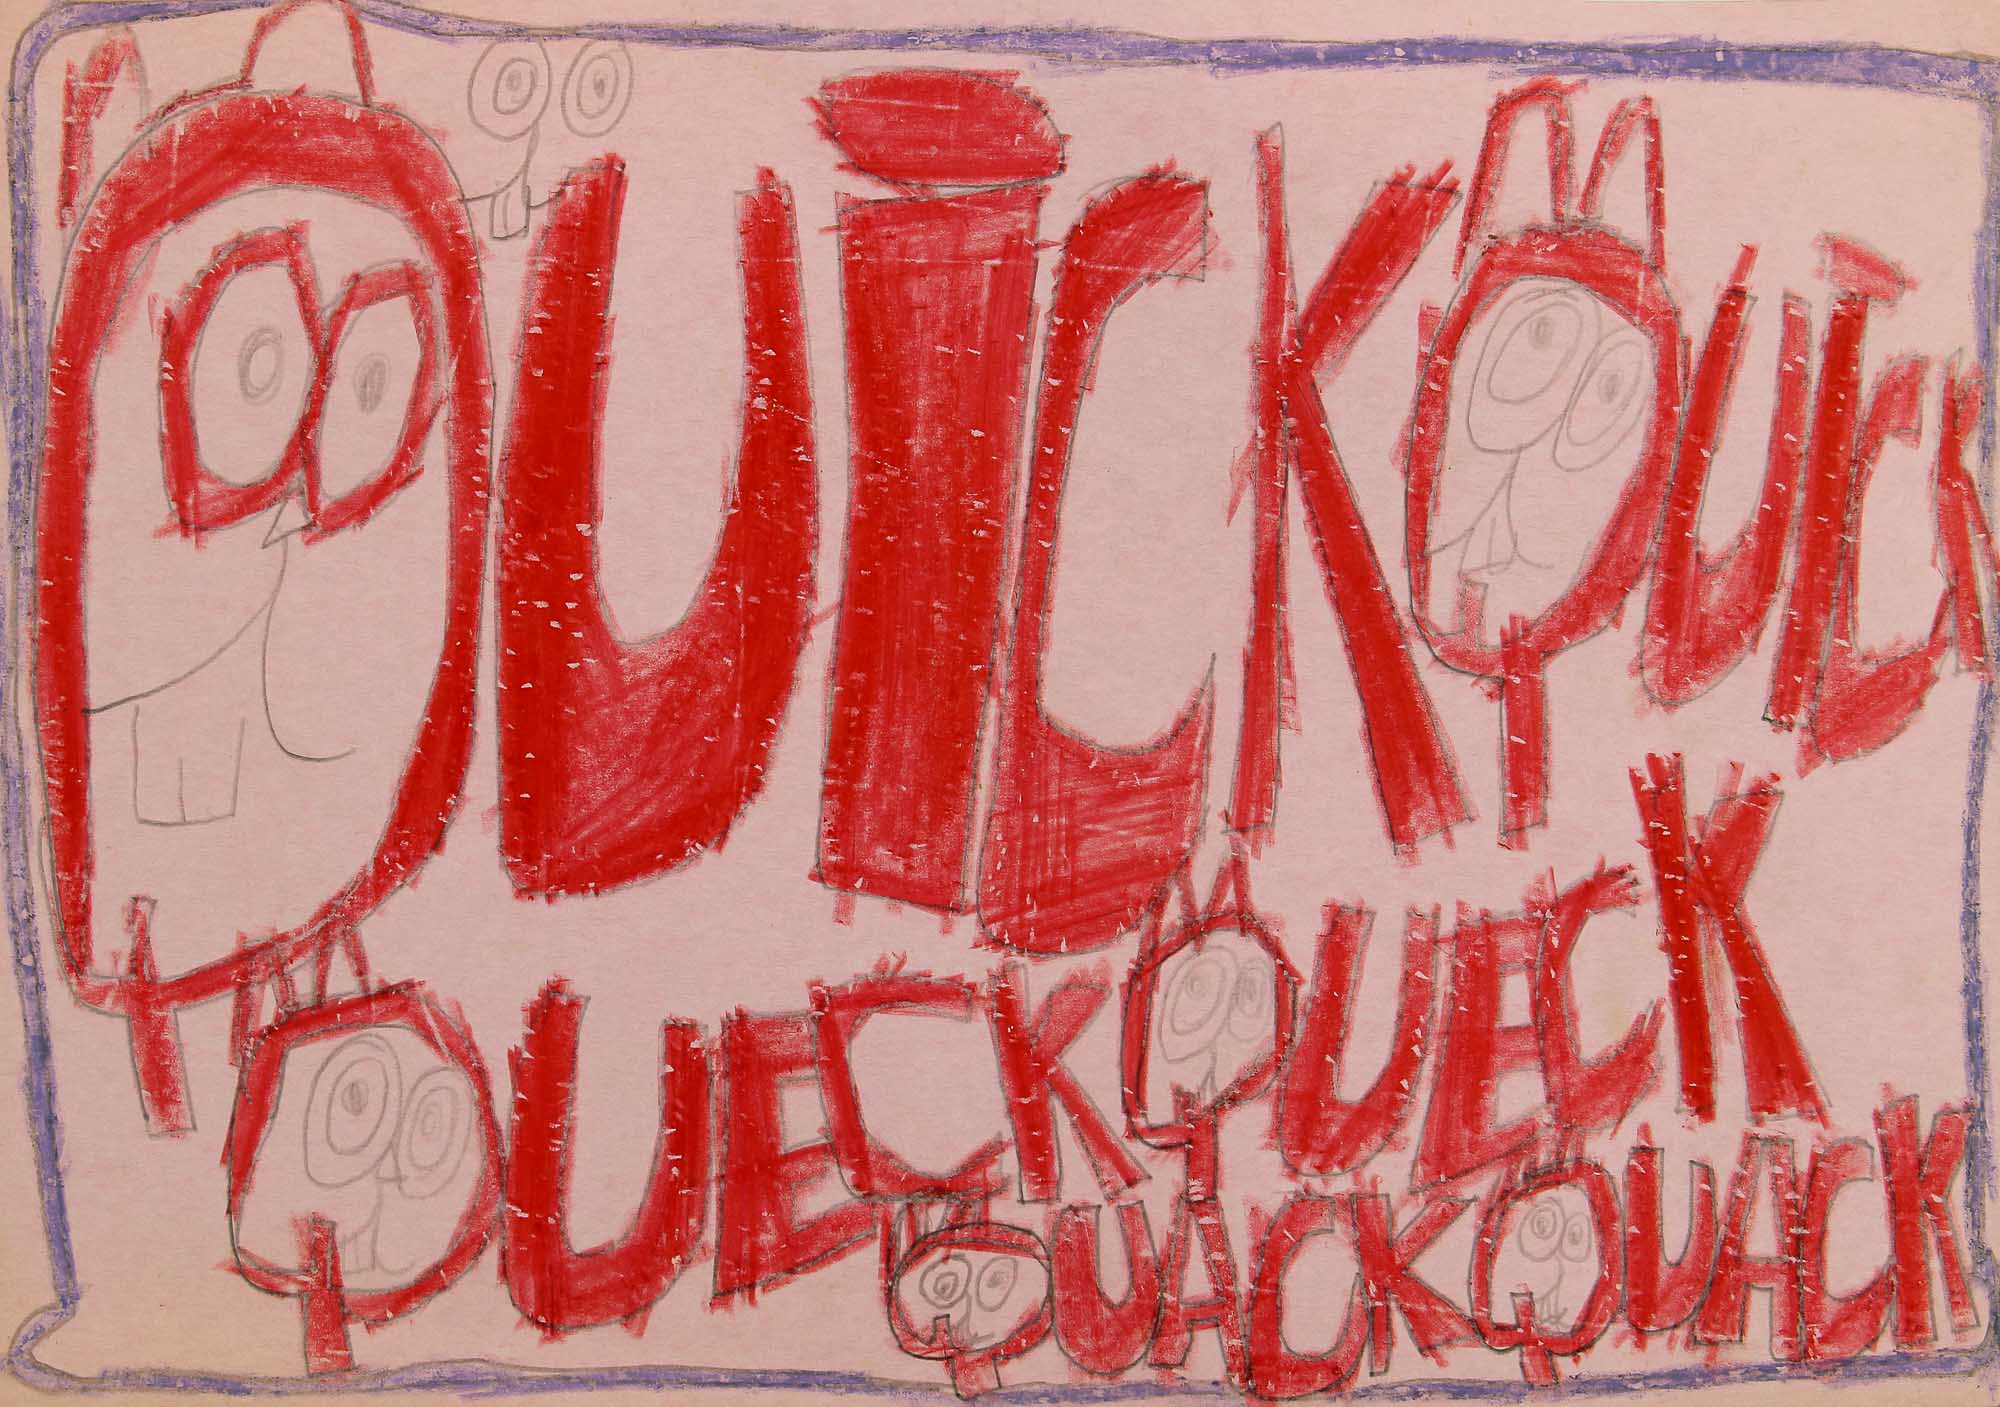 QUiCK QUiCK
QUECK QUECK
QUACK QUACK